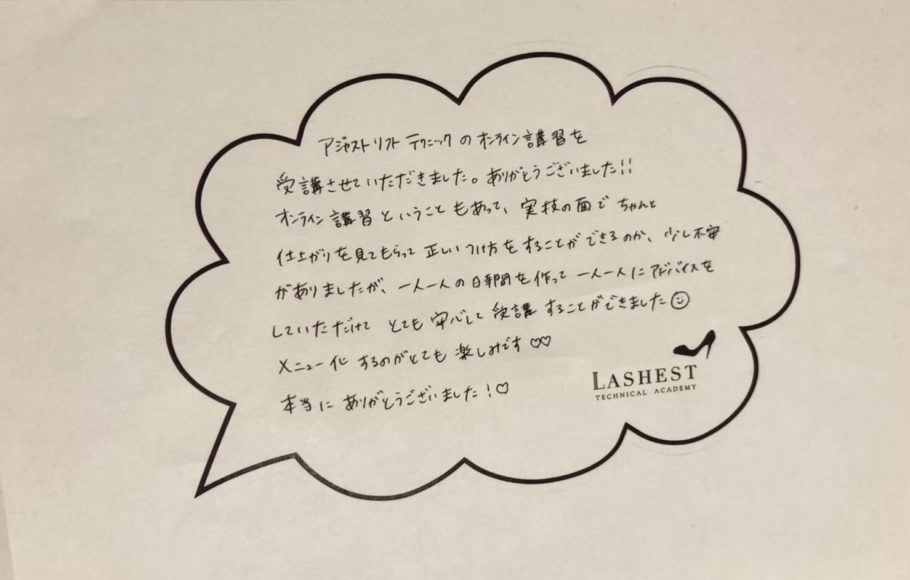 アジャストリフトテクニックのオンライン講習を
受講させていただきました。ありがとうございました!!
オンライン講習ということもあって、実技の面でちゃんと
仕上がりを見てもらって正しいつけ方をすることができるのか、少し不安
がありましたが、一人一人の時間を作って一人一人にアドバイスを
していただけてとても安心して受講することができました☺
メニュー化するのがとても楽しみです♡♡
本当にありがとうございました！♡
LASHEST
TECHNICAL ACADEMY